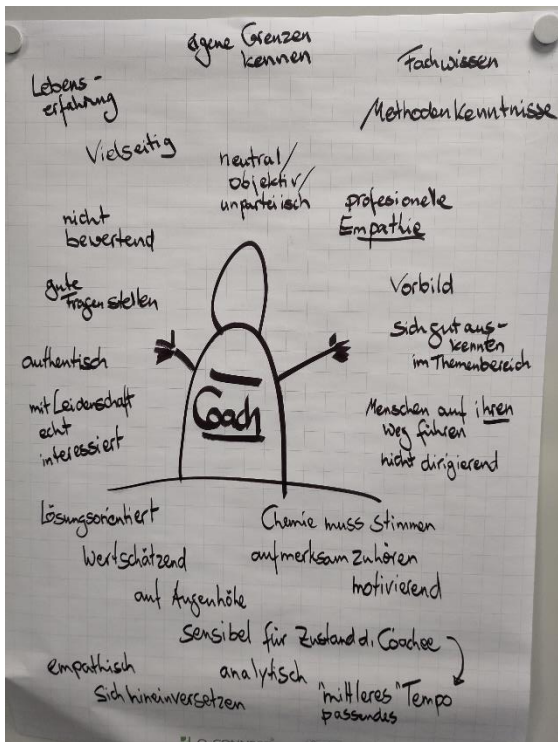 eigene Grenzen
kennen
Fachwissen
Lebens-
erfahrung
Methodenkenntnisse
Vielseitig
neutral/
objektiv/
unparteiisch
profesionelle
Empathie
nicht
bewertend
gute
Fragen stellen
Vorbild
sich gut aus-
kennen
im Themenbereich
authentisch
mit Leidenschaft
echt
interessiert
Coach
Menschen auf ihren
Weg führen
nicht dirigierend
Lösungsorientiert
Chemie muss stimmen
Wertschätzend
aufmerksam zuhören
motivierend
auf Augenhöhe
Sensibel für Zustand d. Coachee
empathisch
analytisch
sich hineinversetzen
"mittleres" Tempo
passendes